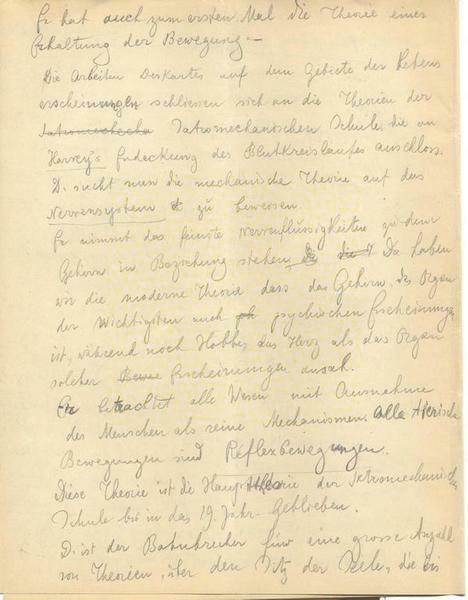 Er hat auch zum ersten Mal die Theorie einer
Erhaltung der Bewegung –
Die Arbeiten Deskartes auf dem Gebiete der Lebens
erscheinungen schliessen sich an die Theorien der
Iatromechanischen Schule, die an
Harvey's Endeckung des Blutkreislaufes anschloss.
D. sucht nun die mechanische Theorie auf das
Nervensystem zu beweisen.
Er nimmt das feinste Nervenflüssigkeiten zu dem
Gehirn in Beziehung stehen, Da haben
wir die moderne Theorie dass das Gehirn, das Organ
der Wichtigsten auch psychischen Erscheinungen
ist, während noch Hobbes das Herz als das Organ
solcher Erscheinungen ansah.
Er betrachtet alle Wesen mit Ausnahme
des Menschen als reine Mechanismen. Alle Tierische
Bewegungen sind Reflexbewegungen.
Diese Theorie ist die Haupttheorie der Iatromechanischen
Schule bis in das 19. Jahr. Geblieben.
D. ist der Bahnbrecher für eine grosse Anzahl
von Theorien, über den Sitz der Seele, die bis